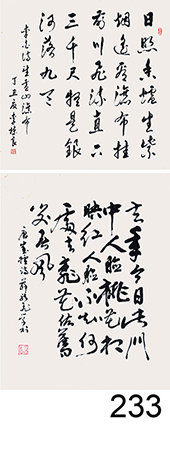 日照香爐生紫
烟遥看瀑布挂
前川飛流直下
三千尺疑是銀
河落九天
李白詩望廬山瀑布
丁丑夏
去年今日此門
中人面桃花相
映紅人面不知何
處去桃花依舊
笑春風
唐崔護詩
233